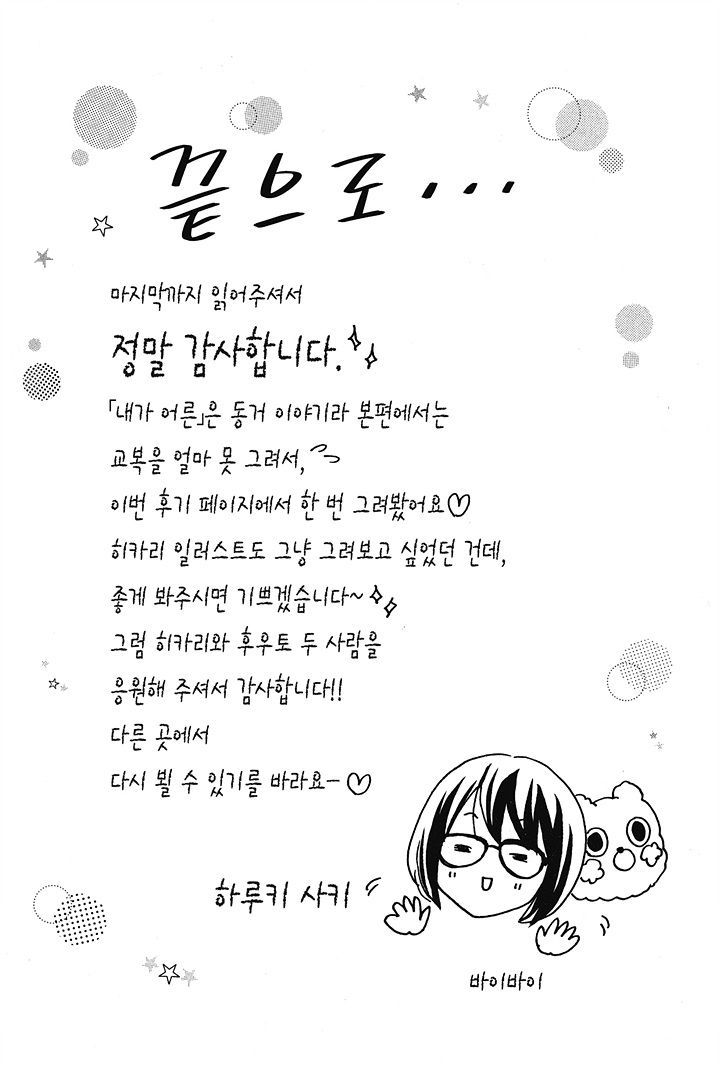 끝으로...
마지막까지 읽어주셔서
정말 감사합니다.
「내가 어른」은 동거 이야기라 본편에서는
교복을 얼마 못 그려서,
이번 후기 페이지에서 한 번 그려봤어요♡
히카리 일러스트도 그냥 그려보고 싶었던 건데,
좋게 봐주시면 기쁘겠습니다~
그럼 히카리와 후우토 두 사람을
응원해 주셔서 감사합니다!!
다른 곳에서
다시 뵐 수 있기를 바라요ー♡
하루키 사키
바이바이